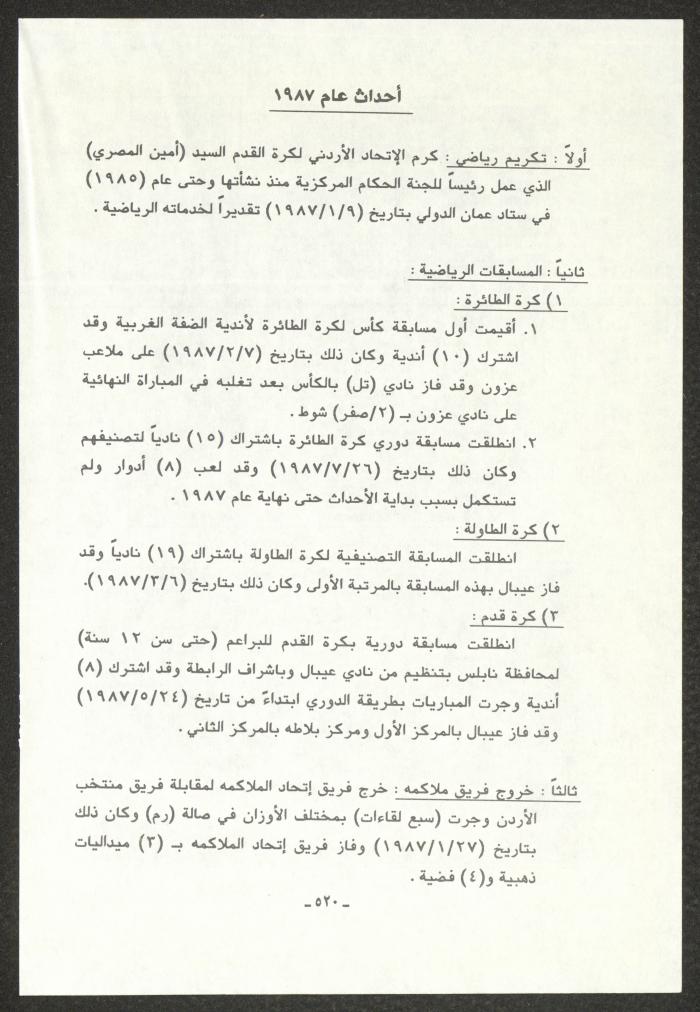 أحداث عام ١٩٨٧
أولاً : تكريم رياضي : كرم الإتحاد الأردني لكرة القدم السيد (أمين المصري)
الذي عمل رئيساً للجنة الحكام المركزية منذ نشأتها وحتى عام (١٩٨٥)
في ستاد عمان الدولي بتاريخ (١٩٨٧/١/٩) تقديراً لخدماته الرياضية .
ثانياً : المسابقات الرياضية :
١) كرة الطائرة :
١. أقيمت أول مسابقة كأس لكرة الطائرة لأندية الضفة الغربية وقد
اشترك (١٠) أندية وكان ذلك بتاريخ (١٩٨٧/٢/٧) على ملاعب
عزون وقد فاز نادي (تل) بالكأس بعد تغلبه في المباراة النهائية
على نادي عزون بـ (٢/صفر) شوط .
٢. انطلقت مسابقة دوري كرة الطائرة باشتراك (١٥) نادياً لتصنيفهم
وكان ذلك بتاريخ (١٩٨٧/٧/٢٦) وقد لعب (٨) أدوار ولم
تستكمل بسبب بداية الأحداث حتى نهاية عام ١٩٨٧ .
٢) كرة الطاولة :
انطلقت المسابقة التصنيفية لكرة الطاولة باشتراك (١٩) نادياً وقد
فاز عيبال بهذه المسابقة بالمرتبة الأولى وكان ذلك بتاريخ (١٩٨٧/٣/٦).
٣) كرة قدم :
انطلقت مسابقة دورية بكرة القدم للبراعم (حتى سن ١٢ سنة)
لمحافظة نابلس بتنظيم من نادي عيبال وباشراف الرابطة وقد اشترك (٨)
أندية وجرت المباريات بطريقة الدوري ابتداءً من تاريخ (١٩٨٧/٥/٢٤)
وقد فاز عيبال بالمركز الأول ومركز بلاطه بالمركز الثاني .
ثالثاً : خروج فريق ملاكمه : خرج فريق إتحاد الملاكمه لمقابلة فريق منتخب
الأردن وجرت (سبع لقاءات) بمختلف الأوزان في صالة (رم) وكان ذلك
بتاريخ (١٩٨٧/١/٢٧) وفاز فريق إتحاد الملاكمه بـ (٣) ميداليات
ذهبية و(٤) فضية .
ـ ٥٢٠ ـ